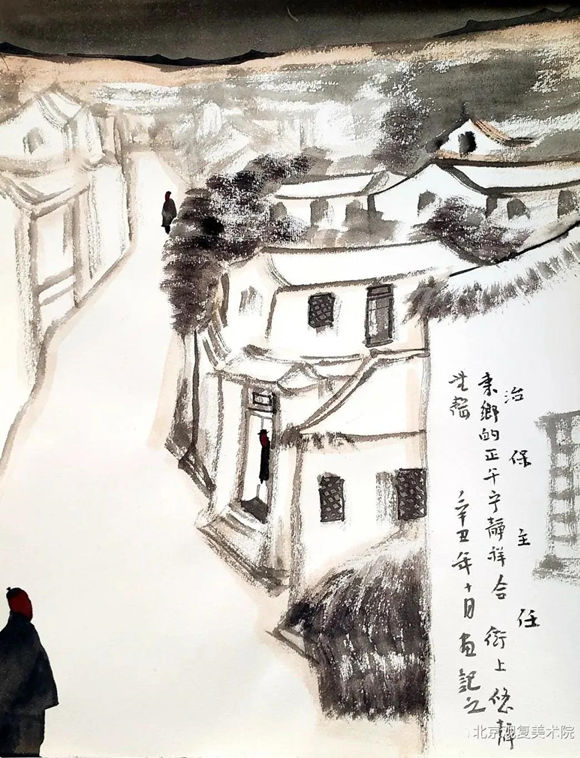 治保主任
东乡的正午宁静祥合街上悠静
辛丑年十月画记之
北京观复美术院